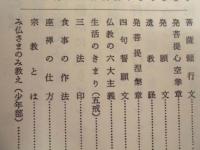 菩薩願行文
発菩提心空華章
発願文
遺教経
発菩提涅槃章
四句誓願文
仏教の六大主義
生活のきまり(五戒)
三法印
食事の作法
座禅の仕方
宗教とは
み仏さまのみ教え(少年部)